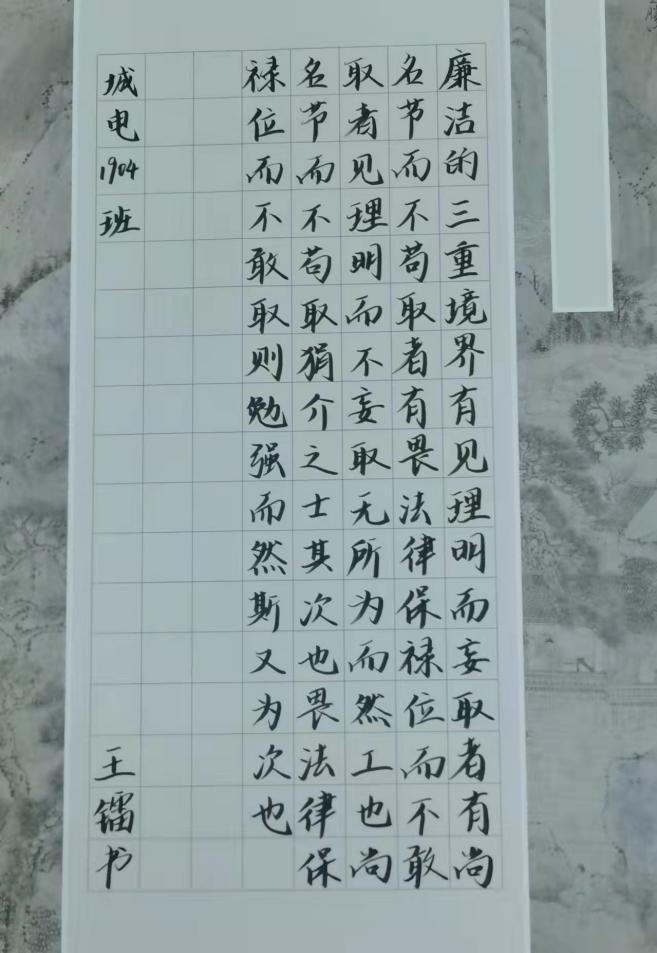 廉洁的三重境界有见理明而妄取者有尚
名节而不苟取者有畏法律保禄位而不敢
取者见理明而不妄取无所为而然工也尚
名节而不苟取狷介之士其次也畏法律保
禄位而不敢取则勉强而然斯又为次也
城电1904班 王镭书